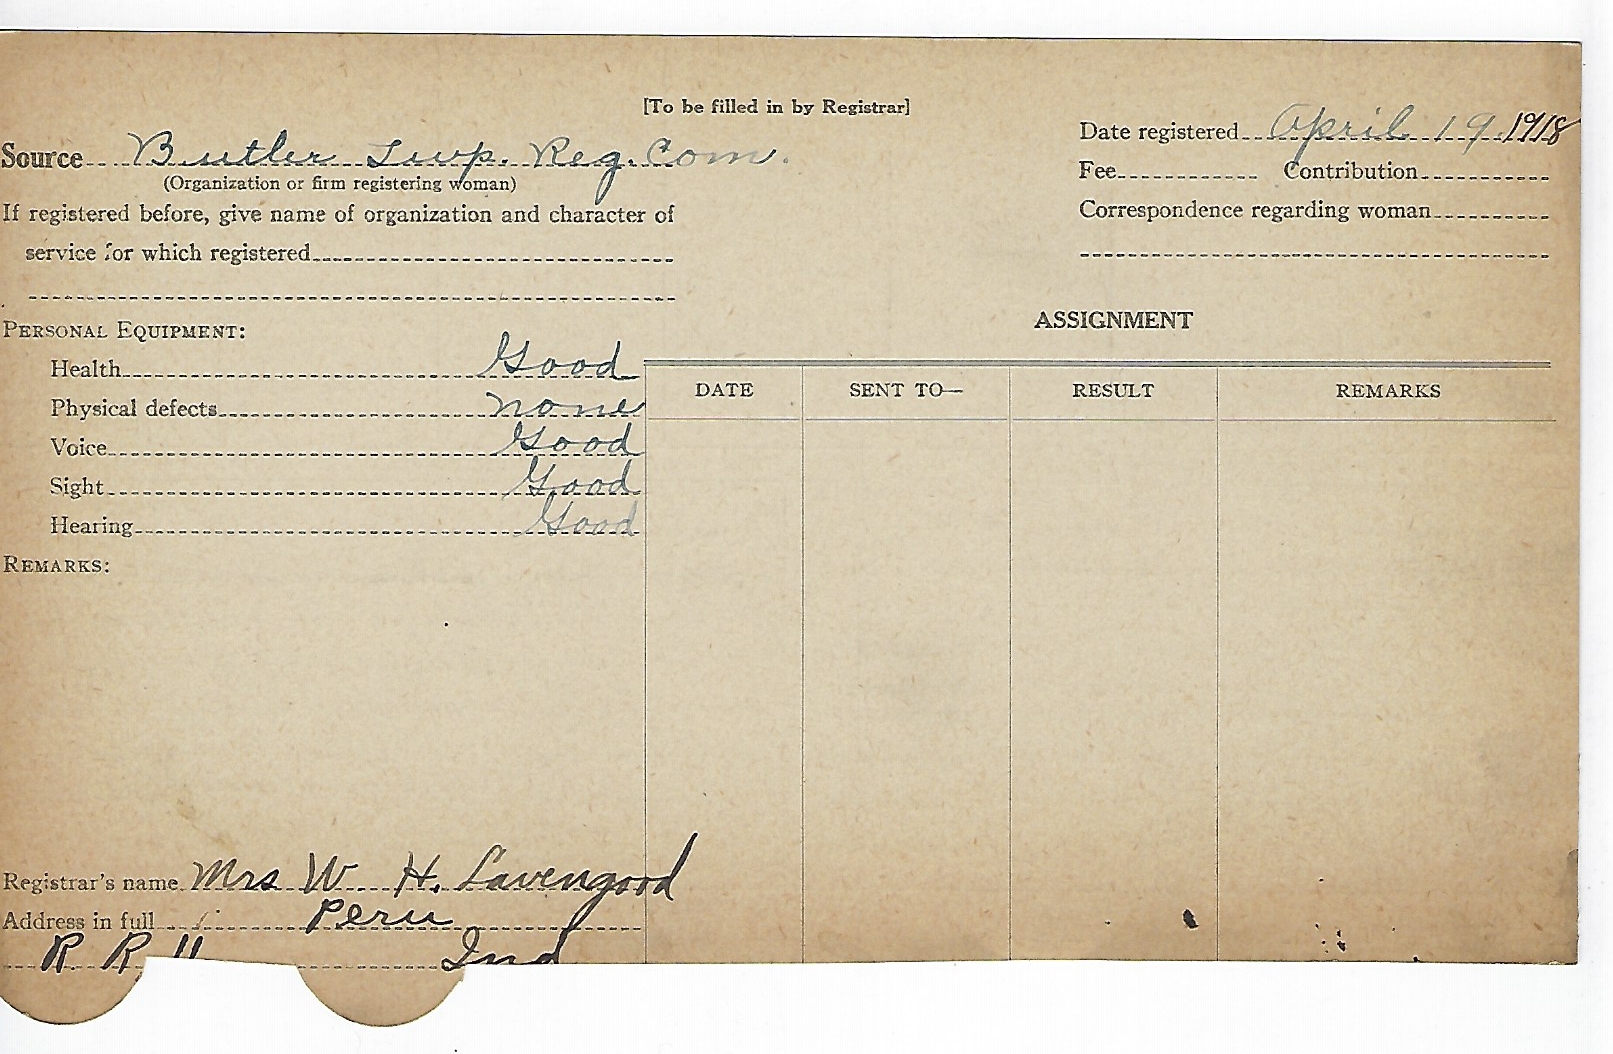 [To be filled in by Registrar]
Source Butler Twp. Reg. Com.
(Organization or firm registering woman)
If registered before, give name of organization and character of
service for which registered
Date registered April 19 1918
Fee Contribution
Correspondence regarding woman
PERSONAL EQUIPMENT:
Health Good
Physical defects none
Voice Good
Sight Good
Hearing Good
REMARKS:
ASSIGNMENT
DATE SENT TO— RESULT REMARKS
Registrar's name Mrs W. H. Lavengood
Address in full Peru
R R 11 Ind